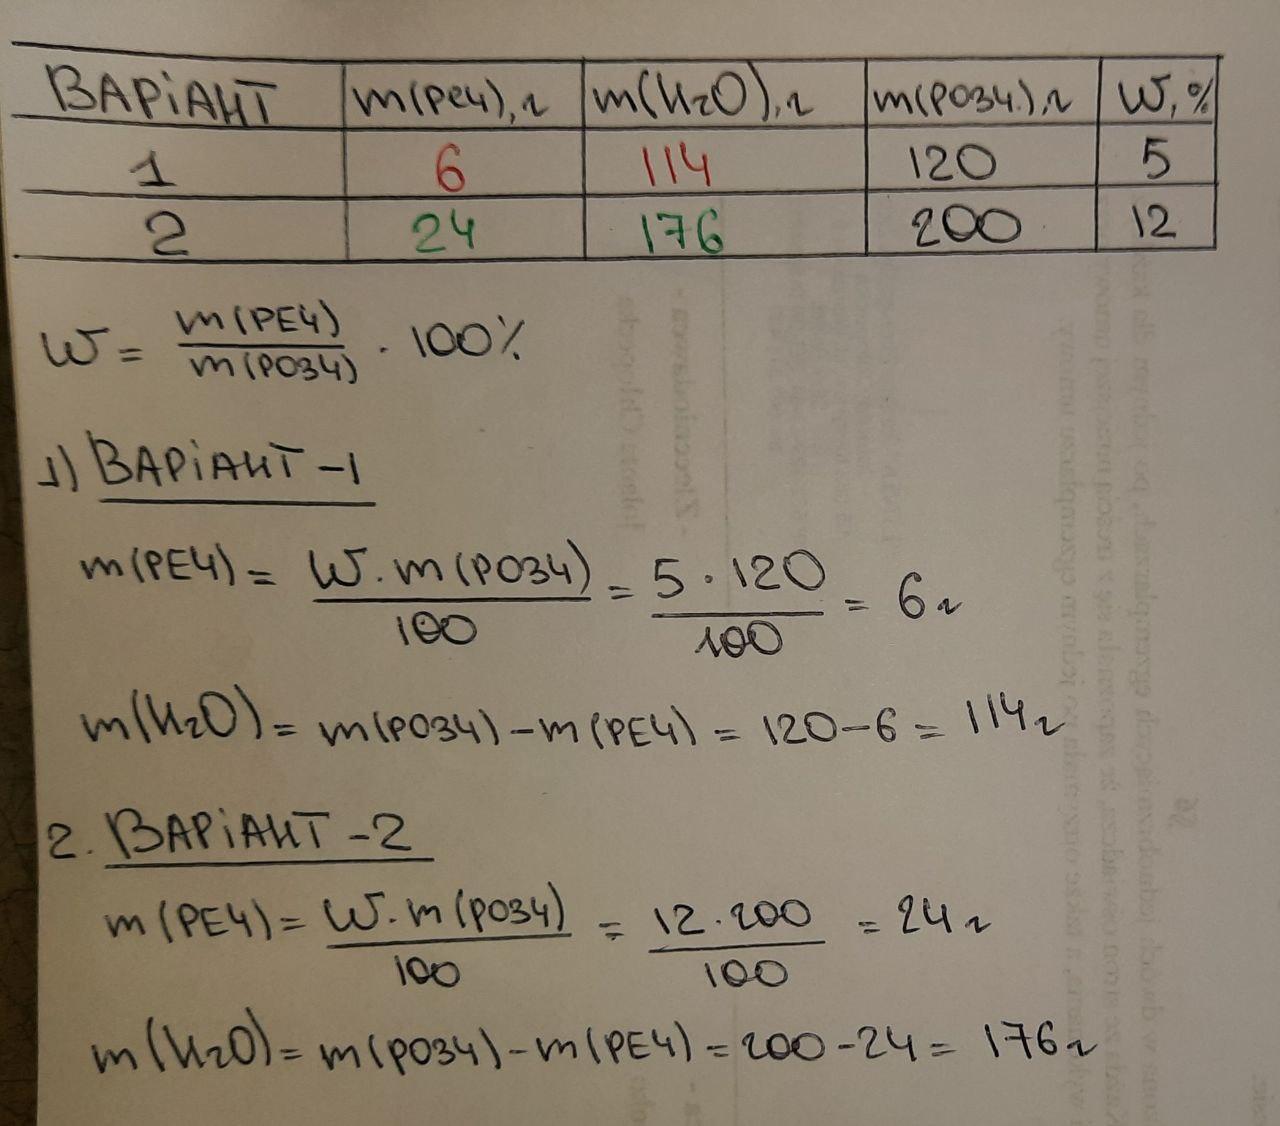 ВАРіАНТ m(реч), г m(H₂O), г m(розч.), г W, %
1 6 114 120 5
2 24 176 200 12
W = m(РЕЧ) / m(РОЗЧ) · 100%
1) ВАРіАНТ - 1
m(РЕЧ) = W · m(РОЗЧ) / 100 = 5 · 120 / 100 = 6 г
m(H₂O) = m(РОЗЧ) - m(РЕЧ) = 120 - 6 = 114 г
2. ВАРіАНТ - 2
m(РЕЧ) = W · m(РОЗЧ) / 100 = 12 · 200 / 100 = 24 г
m(H₂O) = m(РОЗЧ) - m(РЕЧ) = 200 - 24 = 176 г